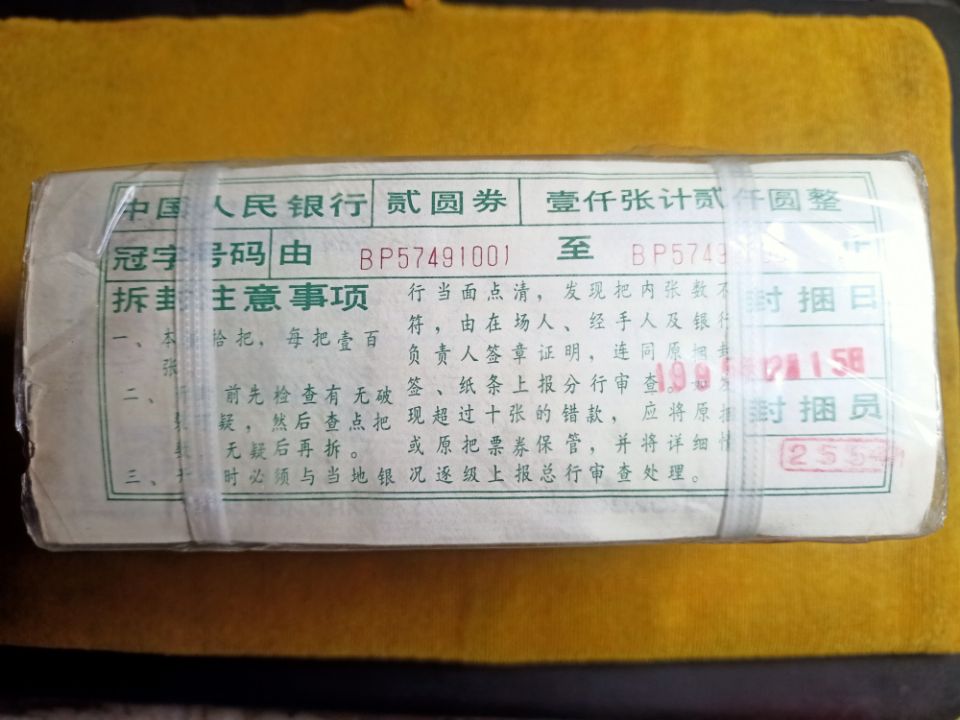 中国人民银行 贰圆券 壹仟张计贰仟圆整
冠字号码 由 BP57491001 至 BP5749
拆封注意事项
一、本 拾把，每把壹百
张
二、 前先检查有无破
疑，然后查点把
无疑后再拆。
三、 时必须与当地银
行当面点清，发现把内张数不
符，由在场人、经手人及银行
负责人签章证明，连同原捆封
签、纸条上报分行审查。如
现超过十张的错款，应将原捆
或原把票券保管，并将详细情
况逐级上报总行审查处理。
封捆日
15
封捆员
255